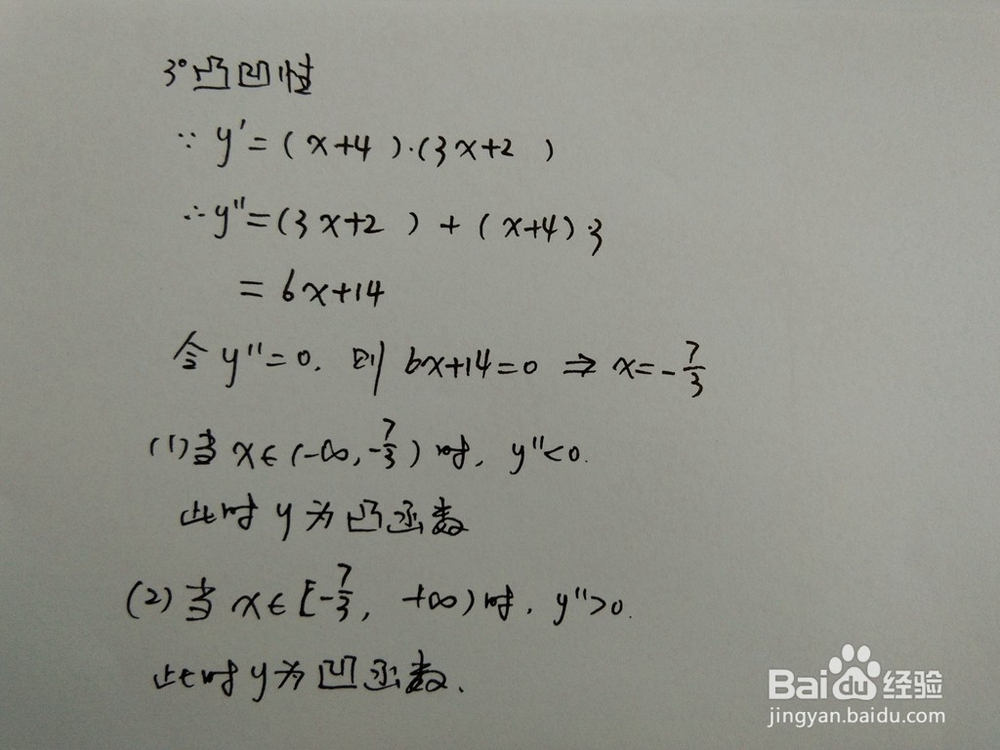 3°凸凹性
∵ y′=(x+4)·(3x+2)
∴ y″=(3x+2)+(x+4)·3
=6x+14
令y″=0. 则 6x+14=0 ⇒ x=-7/3
(1)当 x∈(-∞,-7/3)时, y″<0.
此时 y 为凸函数
(2)当 x∈[-7/3, +∞)时, y″>0.
此时 y为凹函数.
Baidu经验
jingyan.baidu.com